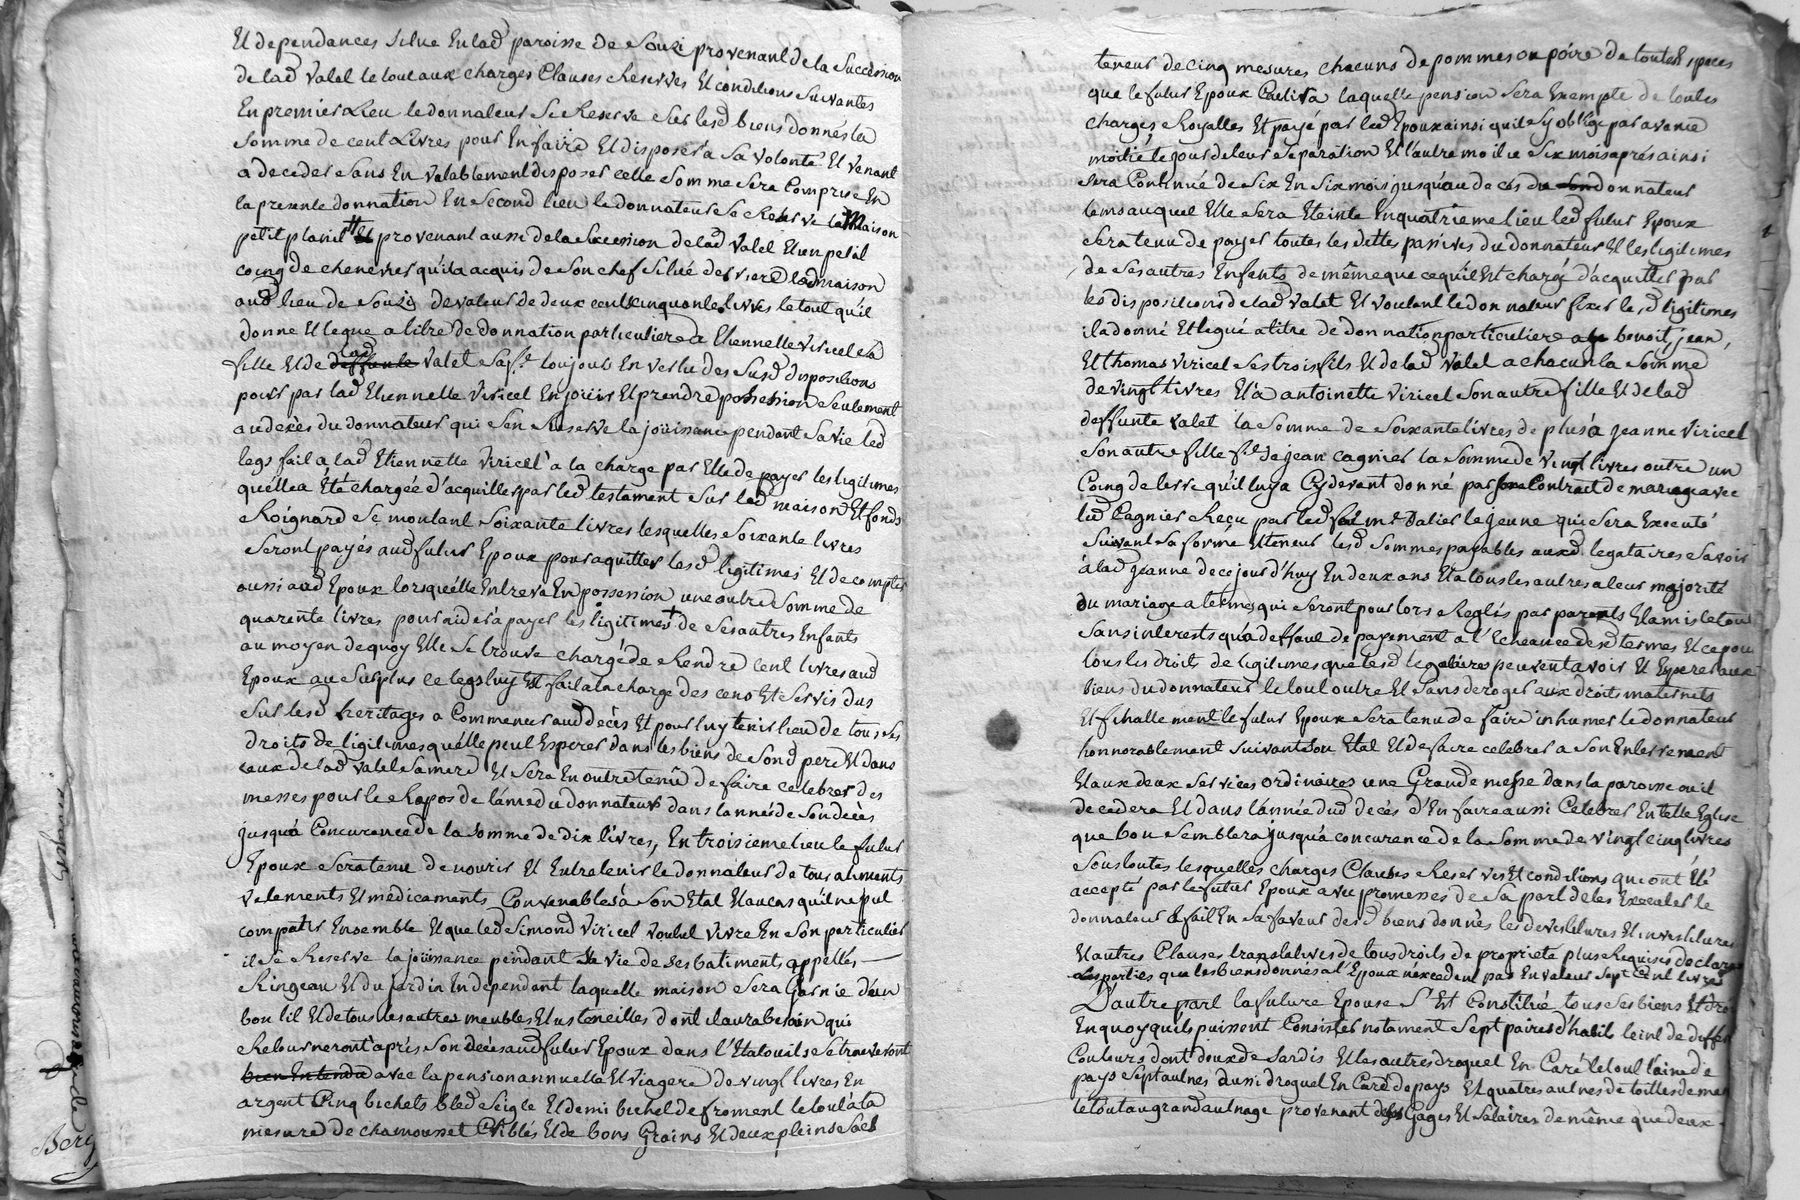 Et dependances situe En lad paroisse de Souzi provenant de la Succession
de lad valet le tout aux charges Clauses Reserves Et conditions Suivantes
En premier Lieu le donnateur Se Reserve Sur lesd biens donnés la
Somme de cent Livres pour En faire Et disposer a Sa volonté Et venant
a deceder Sans En valablement disposer cette Somme Sera Comprise En
la presente donnation En Second lieu le donnateur Se Reserve la maison
petit plant Et provenant aussi de la Succession de lad valet Et un petit
coing de chenevier qu'il a acquis de Son chef Situé derriere lad maison
aud lieu de Souzy de valeur de deux cent cinquante livres le tout qu'il
donne Et legue a titre de donnation particuliere a Etiennette viricel Sa
fille Et de lad deffunte valet Sa fe toujours En vertu des Susd dispositions
pour par lad Etiennette viricel En joüir Et prendre possession Seulement
au decès du donnateur qui S'en Reserve la joüissance pendant Sa vie led
legs fait a lad Etiennette viricel a la charge par Elle de payer les legitimes
qu'elle a Eté chargée d'acquitter par led testament Sur lad maison Et fonds
Roignard Se montant Soixante livres lesquelles Soixante livres
Seront payés aud futur Epoux pour aquitter lesd legitimes Et de compter
aussi aud Epoux lorsqu'elle Entrera En possession une autre Somme de
quarente livres pour aider à payer les legitimes de Ses autres Enfants
au moyen de quoy Elle Se trouve chargé de Rendre cent livres aud
Epoux au Surplus ce legs luy Est fait a la charge des cens Et Servis dus
Sur lesd heritages a Commencer aud decès Et pour luy tenir lieu de tous Ses
droits de legitimes qu'elle peut Esperer dans les biens de Sond pere Et dans
ceux de lad valet Sa mere Et Sera En outre tenüe de faire celebrer des
messes pour le Repos de l'ame du donnateur dans l'année de Son decès
jusqu'a Concurence de la Somme de dix livres, En troisieme lieu le futur
Epoux Sera tenu de nourir Et Entretenir le donnateur de tous aliments
vetements Et médicaments Convenables à Son Etat Et au cas qu'il ne put
compatir Ensemble Et que led Simond viricel voulut vivre En Son particulier
il Se Reserve la joüissance pendant Sa vie de Ses batiments appellés
Ringeau Et du jardin Independant laquelle maison Sera Garnie d'un
bon lit Et de tous les autres meubles Et usteneilles dont il aura besoin qui
Retourneront après Son decès aud futur Epoux dans l'Etat ou ils Se trouveront
bien Entendu avec la pension annuelle Et viagere de vingt livres En
argent Cinq bichets bled Seigle Et demi bichet de froment le tout à la
mesure de chamousset Criblés Et de bons Grains Et deux pleins Sacs
teneur de cinq mesures chacuns de pommes ou poire de toutes Especes
que le futur Epoux Cultiva laquelle pension Sera Exempte de toutes
charges Royalles Et payé par led Epoux ainsi qu'il S'y oblige par avance
moitié le jour de leur Separation Et l'autre moitié Six mois après ainsi
Sera Continué de Six En Six mois jusqu'au decès du Son donnateur
tems auquel Elle Sera Eteinte En quatrieme lieu led futur Epoux
Sera tenu de payer toutes les dettes passives du donnateur Et les legitimes
de Ses autres Enfants de même que ce qu'il Est chargé d'acquitter par
les dispositions de lad valet Et voulant le donnateur fixer lesd legitimes
il a donné Et legué a titre de donnation particuliere a benoit, jean,
Et thomas viricel Ses trois fils Et de lad valet a chacun la Somme
de vingt livres Et à antoinette viricel Son autre fille Et de lad
deffunte valet la Somme de Soixante livres de plus à jeanne viricel
Son autre fille fe de jean cagnier la Somme de vingt livres outre un
Coing de terre qu'il luy a Cy devant donné par Son Contrat de mariage avec
led Cagnier Reçu par led feu me Dalier le jeune qui Sera Executé
Suivant Sa forme Et teneur lesd Sommes payables auxd legataires Savoir
à lad jeanne de ce jour d'huy En deux ans Et a tous les autres a leur majorité
ou mariage a termes qui Seront pour lors Reglés par parents Et amis le tout
Sans interests qu'a deffaut de payement a l'Echeance desd termes Et ce pour
tous les droits de legitimes que lesd legataires peuvent avoir Et Esperer aux
biens du donnateur le tout outre Et Sans deroger aux droits maternels
Et finallement le futur Epoux Sera tenu de faire inhumer le donnateur
honnorablement Suivant Son Etat Et de faire celebrer a Son Enterrement
Et aux deux Services ordinaires une Grande messe dans la paroisse ou il
decedera Et dans l'année dud decès d'En faire aussi Celebrer En telle Eglise
que bon Semblera jusqu'à concurence de la Somme de vingt cinq livres
Sous toutes lesquelles charges Clauses Reserves Et conditions qui ont Eté
accepté par le futur Epoux avec promesses de Sa part de les Executer le
donnateur a fait En Sa faveur desd biens donnés les devestitures Et investitures
Et autres Clauses translatives de tous droits de propriété plus Requises declarant
les parties que les biens donnés a l'Epoux n'excedent pas En valeur Sept Cent livres
D'autre part la future Epouse S'Est Constitué tous Ses biens Et dro
En quoy qu'ils puissent Consister notament Sept paires d'habit teint de differ
Couleurs dont deux de Sardis Et les autres droguet En Caré le tout laine de
pays Sept aulnes aussi droguet En Caré de pays Et quatres aulnes de toilles de me
le tout au grand aulnage provenant de Ses Gages Et Salaires de même que deux
Berg